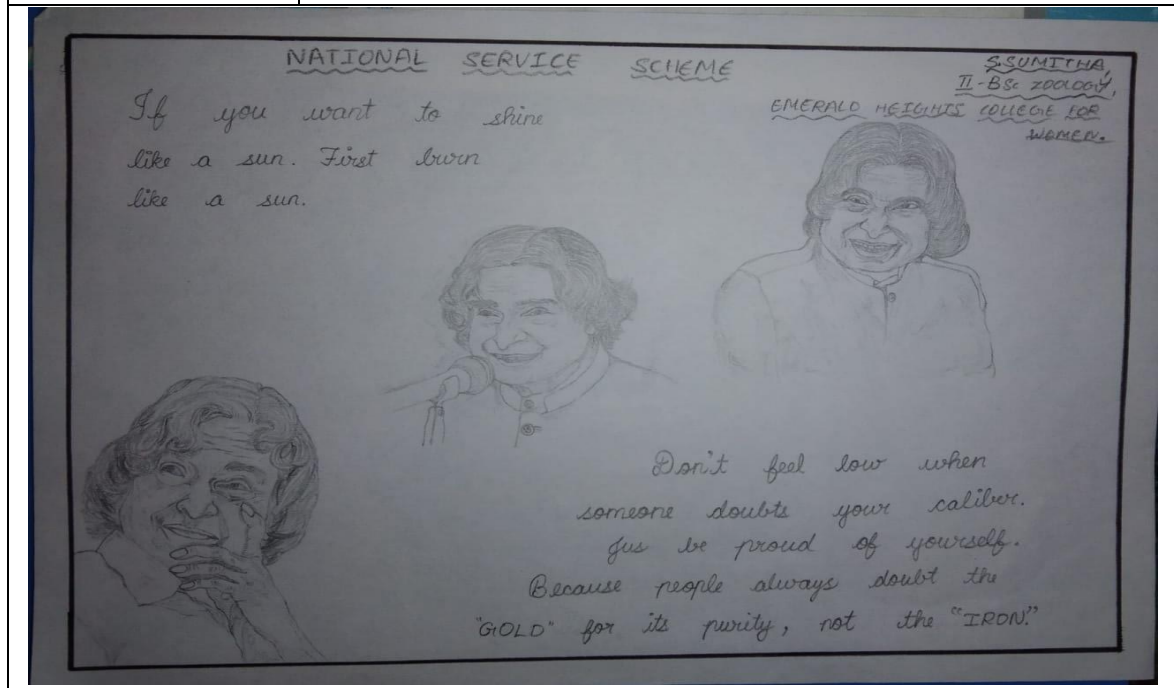 NATIONAL SERVICE SCHEME
S.SUMITHA,
II-BSc ZOOLOGY,
EMERALD HEIGHTS COLLEGE FOR
WOMEN.
If you want to shine
like a sun. First burn
like a sun.
Don't feel low when
someone doubts your caliber.
Jus be proud of yourself.
Because people always doubt the
"GOLD" for its purity, not the "IRON."